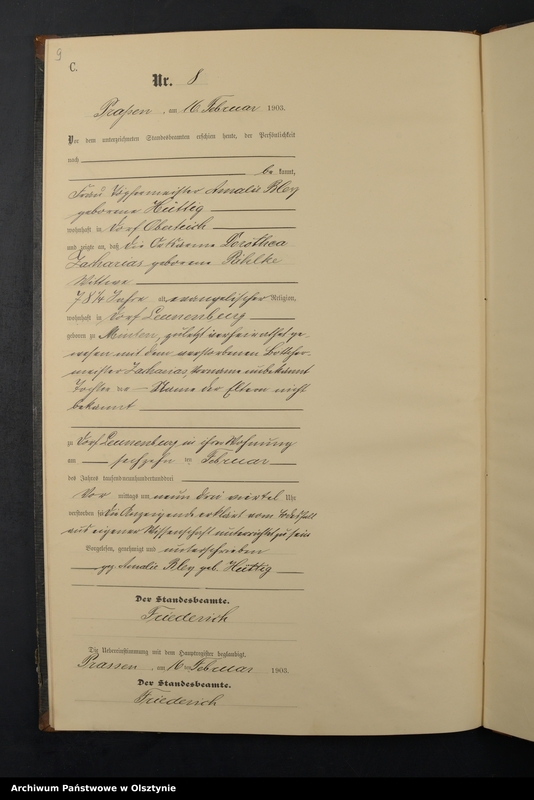 9
C.
Nr. 8
Prassen, am 16 Februar 1903.
Vor dem unterzeichneten Standesbeamten erschien heute, der Persönlichkeit
nach
be kannt,
Frau Töpfermeister Amalie Bley
geborene Hüttig
wohnhaft in Dorf Oberteich
und zeigte an, daß die Ortsarme Dorothea
Zacharias geborene
Wittwe
78 ¼ Jahre alt, evangelischer Religion,
wohnhaft in Dorf Leunenburg
geboren zu zuletzt verheirathet ge-
wesen mit dem verstorbenen Böttcher-
meister Zacharias, Vorname unbekannt
Tochter der Name der Eltern nicht
bekannt
zu Dorf Leunenburg in ihrer Wohnung
am sechzehn ten Februar
des Jahres tausendneunhundertunddrei
Vor mittags um neun drei viertel Uhr
verstorben sei Die Anzeigende erklärt vom Todesfall
aus eigener Wissenschaft unterrichtet zu sein
Vorgelesen, genehmigt und unterschrieben
gez. Amalie Bley geb. Hüttig
Der Standesbeamte.
Friederich
Die Uebereinstimmung mit dem Hauptregister beglaubigt.
Prassen, am 16 ten Februar 1903.
Der Standesbeamte.
Friederich
Archiwum Państwowe w Olsztynie